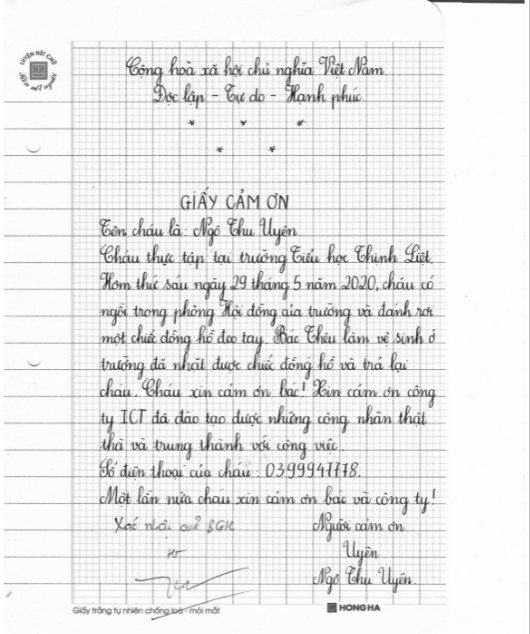 Cộng hoà xã hội chủ nghĩa Việt Nam
Độc lập - Tự do - Hạnh phúc
* * *
* *
GIẤY CẢM ƠN
Tên cháu là: Ngô Thu Uyên.
Cháu thực tập tại trường Tiểu học Thịnh Liệt.
Hôm thứ sáu ngày 29 tháng 5 năm 2020, cháu có
ngồi trong phòng Hội đồng của trường và đánh rơi
một chiếc đồng hồ đeo tay. Bác Thêu làm vệ sinh ở
trường đã nhặt được chiếc đồng hồ và trả lại
cháu. Cháu xin cảm ơn bác! Xin cảm ơn công
ty ICT đã đào tạo được những công nhân thật
thà và trung thành với công việc.
Số điện thoại của cháu: 0399941178.
Một lần nữa cháu xin cảm ơn bác và công ty!
Xác nhận của BGH
Người cảm ơn
Uyên
Ngô Thu Uyên.
Giấy trắng tự nhiên chống loá - mỏi mắt
HONG HA